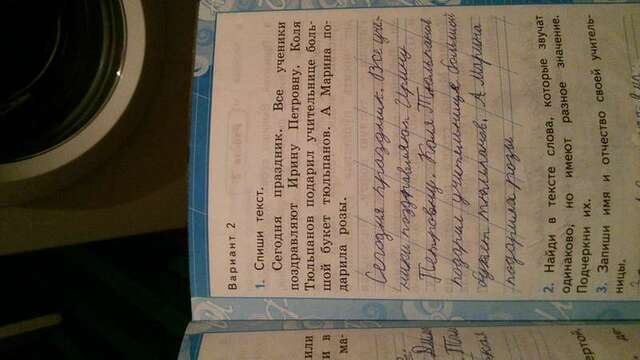 Вариант 2
1. Спиши текст.
Сегодня праздник. Все ученики
поздравляют Ирину Петровну. Коля
Тюльпанов подарил учительнице боль-
шой букет тюльпанов. А Марина по-
дарила розы.
Сегодня праздник. Все уче-
ники поздравляют Ирину
Петровну. Коля Тюльпанов
подарил учительнице большой
букет тюльпанов. А Марина
подарила розы
2. Найди в тексте слова, которые звучат
одинаково, но имеют разное значение.
Подчеркни их.
3. Запиши имя и отчество своей учитель-
ницы.
или
и в
ма-
кая
ертой,
де-